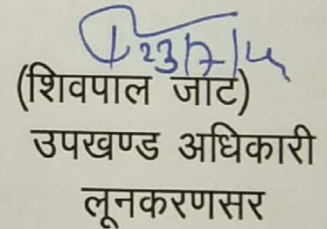 23/7/14
(शिवपाल जाट)
उपखण्ड अधिकारी
लूनकरणसर